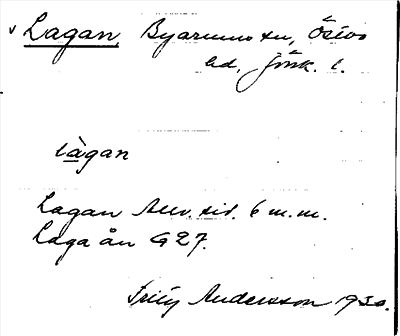 Lagan, Byarums sn, Östbo
hd, Jönk. l.
làgan
Lagan Allv. sid. 6 m.m.
Laga ån G 27.
Fritz Andersson 1930.